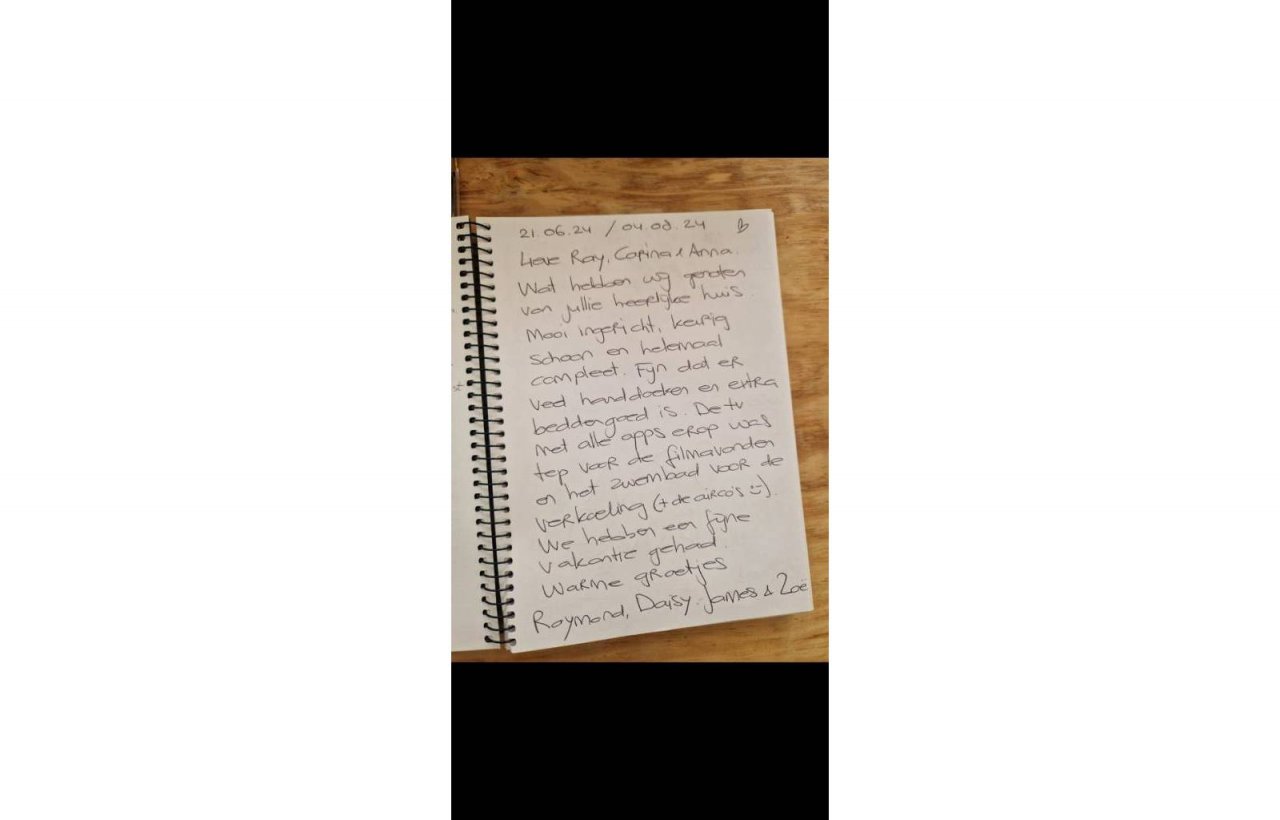 21.06.24 / 04.08.24
Lieve Ray, Corina & Anna.
Wat hebben wij genoten
van jullie heerlijke huis.
Mooi ingericht, keurig
schoon en helemaal
compleet. Fijn dat er
veel handdoeken en extra
beddengoed is. De tv
met alle apps erop was
top voor de filmavonden
en het zwembad voor de
verkoeling (+ de airco's :)).
We hebben een fijne
vakantie gehad.
Warme groetjes
Raymond, Daisy, James & Zoë